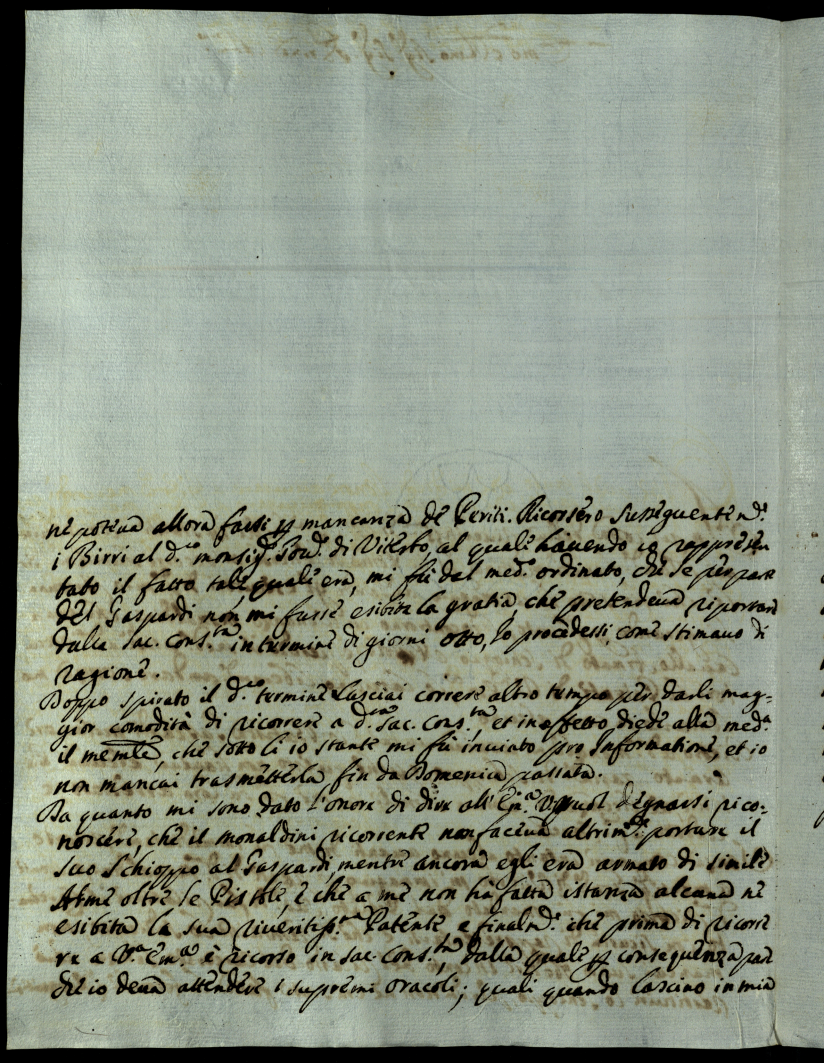 ne poteva allora farsi per mancanza de Periti. Ricorsero susseguentemd.e
i Birri al d.to monsig.r Gov.re di Viterbo, al quale havendo io rappresen
tato il fatto tale quale era, mi fù dal med.o ordinato, che se per parte
del Gaspardi non mi fusse esibita la gratia, che pretendeva riportare
dalla Sac. Cons.ta in termine di giorni otto, Io procedessi, come stimavo di
ragione.
Doppo spirato il d.to termine lasciai correre altro tempo per darli mag=
gior comodità di ricorrere a d.ta Sac. Cons.ta, et in effetto diede alla med.a
il memle, che sotto li io stante mi fù inviato pro Informatione, et io
non mancai trasmetterla fin da Domenica passata.
Da quanto mi sono dato l'onore di dire all' Em.a V. puol degnarsi rico=
noscere, che il monaldini ricorrente non faceva altrim.te portare il
suo Schioppo al Gaspardi, mentre ancora egli era armato di simile
Arme oltre le Pistole, e che a me non hà fatta istanza alcuna ne
esibita la sua riveritiss.ma Patente, e finalm.e che prima di ricorre
re a V.a Em.a è ricorso in Sac. Cons.ta, dalla quale per consequenza par
che io deva attendere i supremi oracoli; quali quando lascino in mia